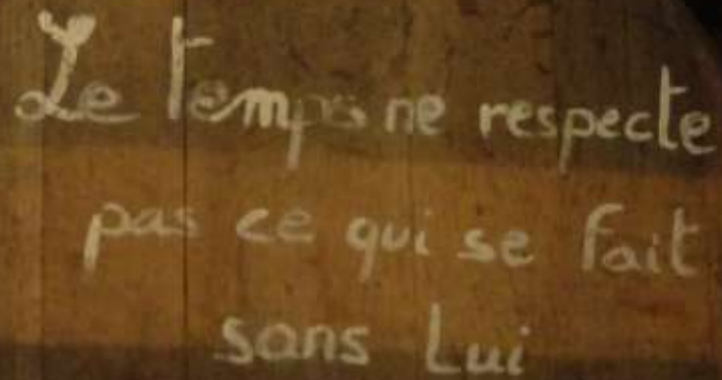 Le Temps ne respecte
pas ce qui se fait
sans Lui